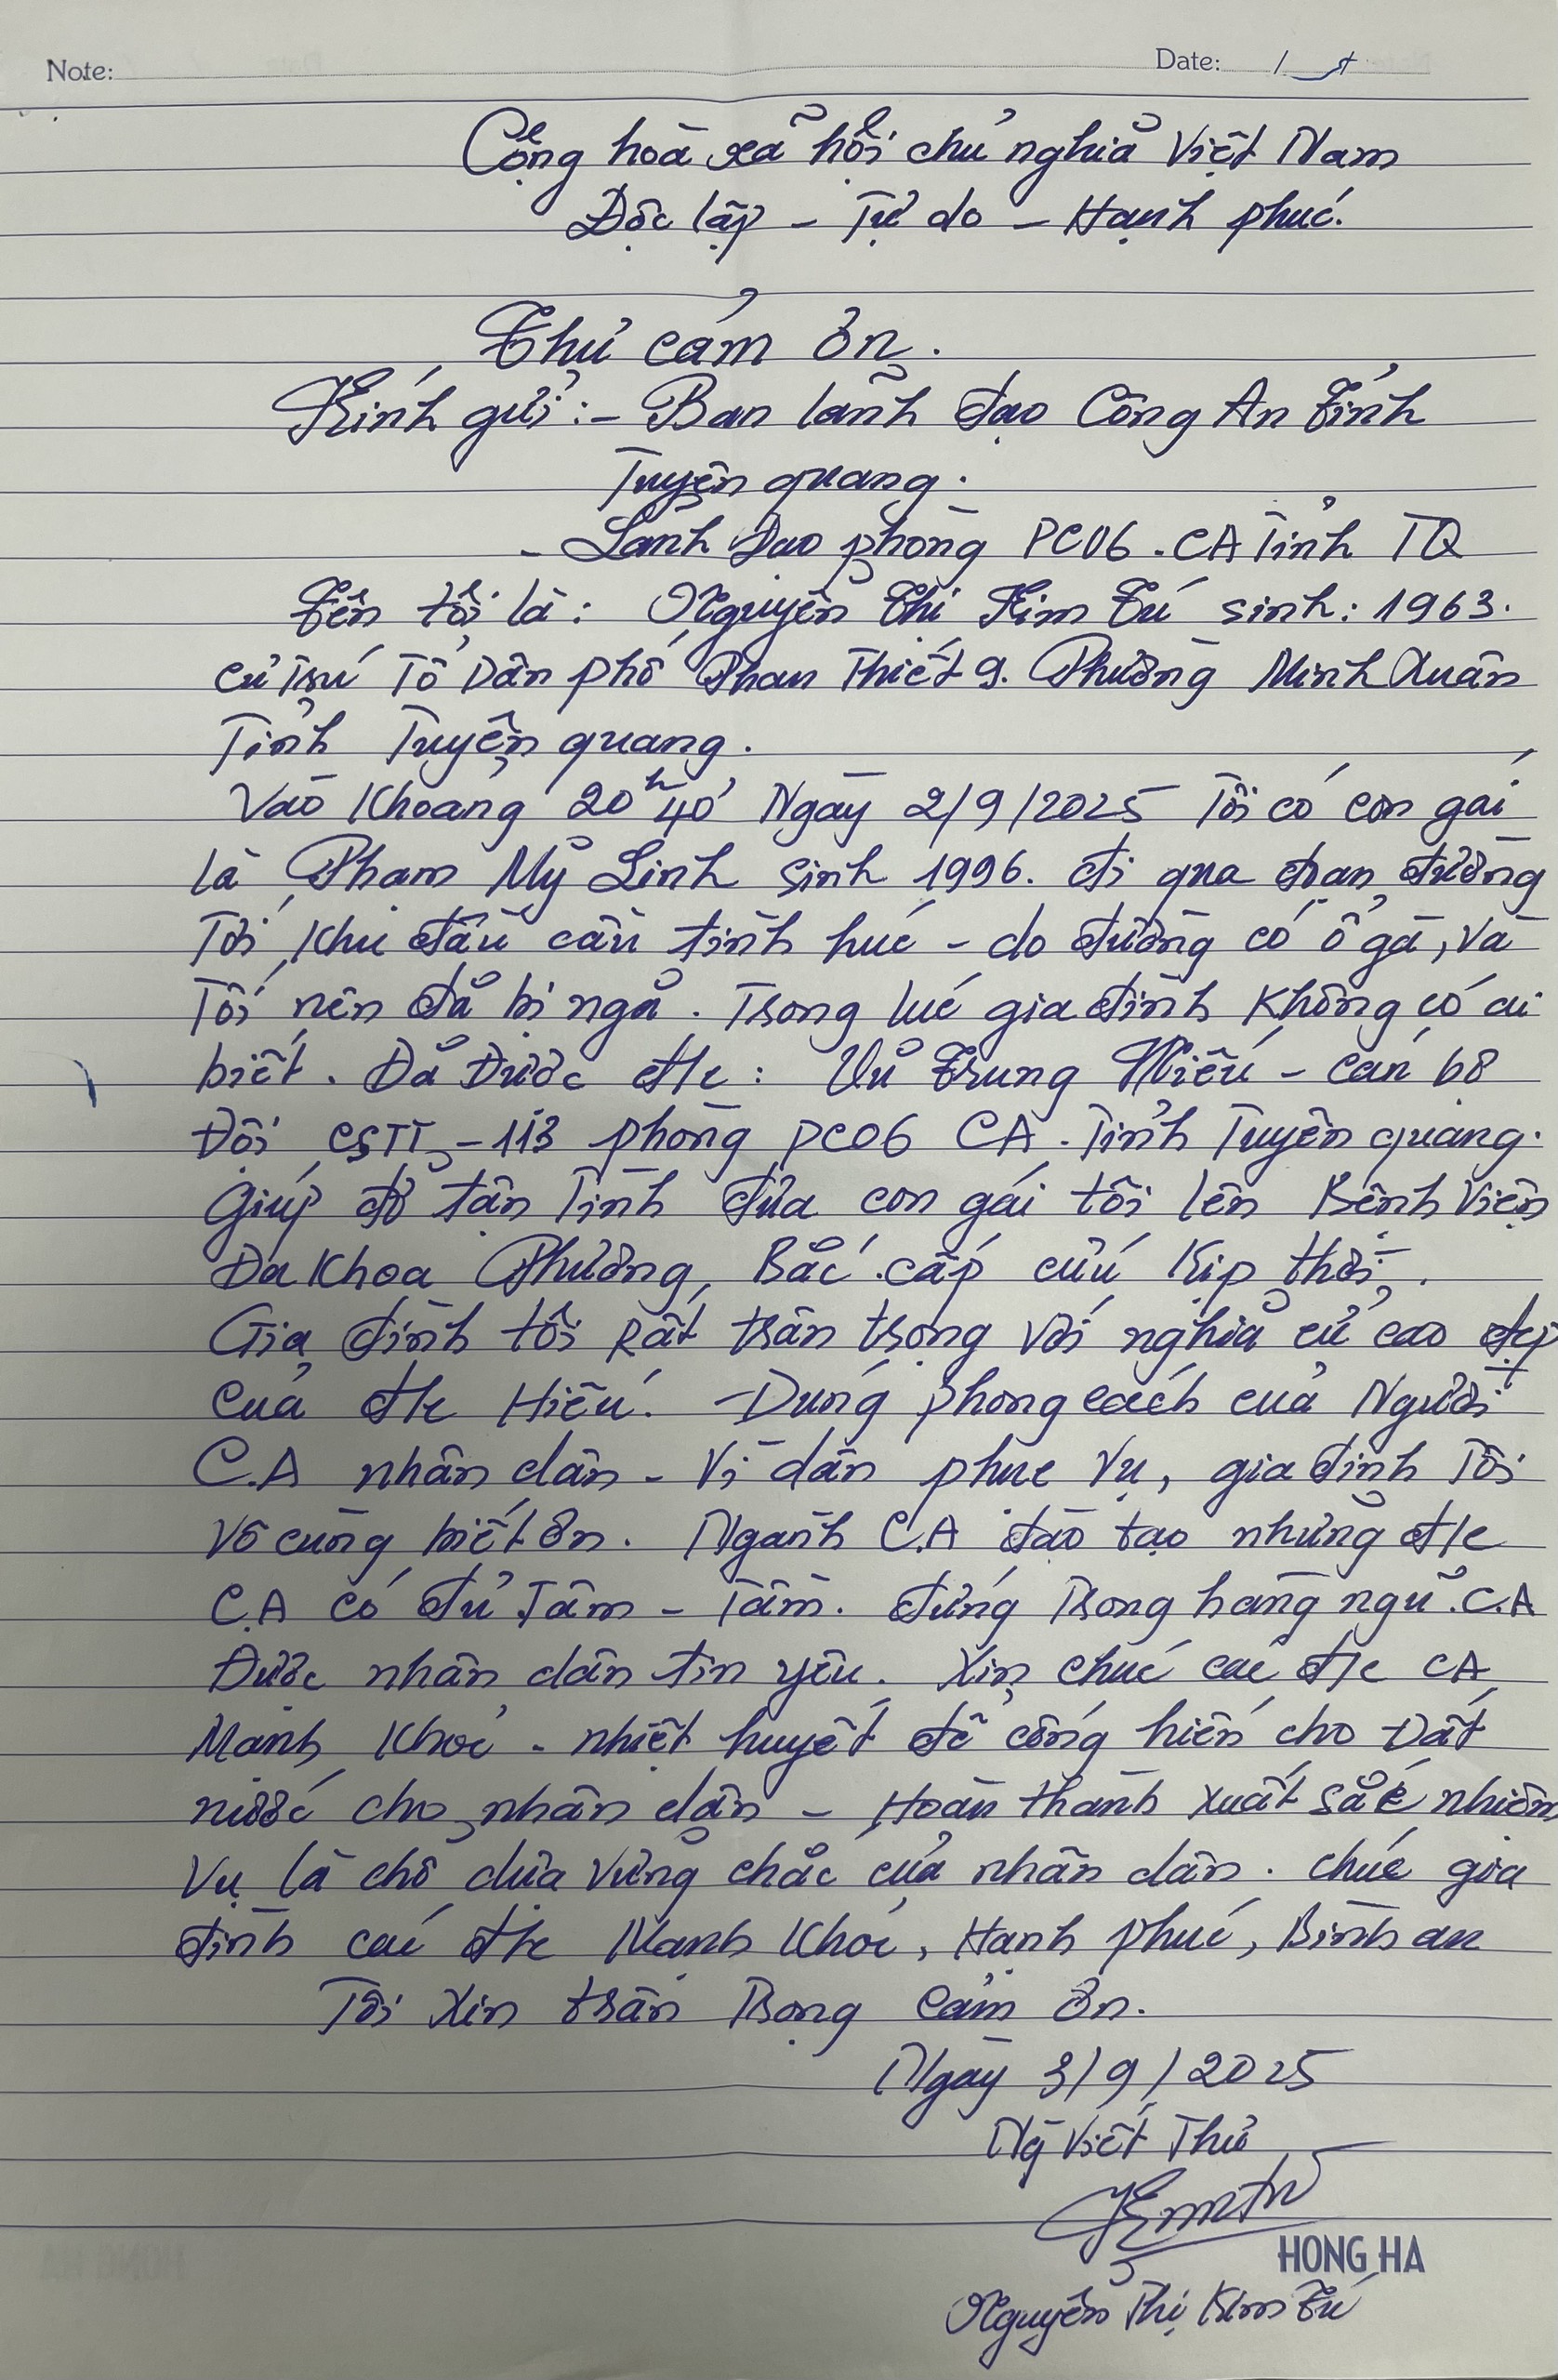 Note: Date:
Cộng hoà xã hội chủ nghĩa Việt Nam
Độc lập - Tự do - Hạnh phúc.
Thư cảm ơn.
Kính gửi: - Ban lãnh đạo Công An Tỉnh
Tuyên quang.
- Lãnh Đạo phòng PC06 - CA Tỉnh TQ
Tên tôi là: Nguyễn Thị Kim Tú sinh: 1963.
cư trú Tổ Dân phố Phan Thiết 9. Phường Minh Xuân
Tỉnh Tuyên quang.
Vào khoảng 20h40' Ngày 2/9/2025 Tôi có con gái
là Phạm Mỹ Linh sinh 1996. đi qua đoạn đường
Tới khu đầu cầu tình húc - do đường có ổ gà, và
Tối nên đã bị ngã. Trong lúc gia đình không có ai
biết. Đã Được đ/c: Vũ Trung Hiếu - cán bộ
Đội CSTT - 113 phòng PC06 CA. Tỉnh Tuyên quang.
Giúp đỡ tận Tình đưa con gái tôi lên Bệnh Viện
Đa khoa Phương Bắc cấp cứu kịp thời.
Gia đình tôi Rất trân trọng với nghĩa cử cao đẹp
của đ/c Hiếu. - Đúng phong cách của Người
C.A nhân dân - Vì dân phục vụ, gia đình Tôi
vô cùng biết ơn. Ngành C.A đào tạo những đ/c
C.A có đủ Tâm - Tầm. đứng Trong hàng ngũ C.A
Được nhân dân tin yêu. Xin chúc các đ/c CA
Mạnh khoẻ - nhiệt huyết để cống hiến cho Đất
nước cho nhân dân - Hoàn thành xuất sắc nhiệm
vụ là chỗ dựa vững chắc của nhân dân. chúc gia
đình các đ/c Mạnh khoẻ, Hạnh phúc, Bình an
Tôi xin trân Trọng cảm ơn.
Ngày 3/9/2025
Ng Viết Thư
HONG HA
Nguyễn Thị Kim Tú